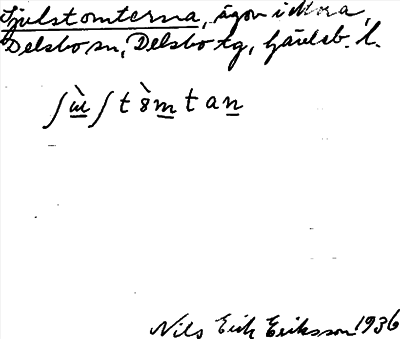 Sjulstomterna, ägor i Mora,
Delsbo sn, Delsbo tg, Gävleb. l.
ʃɯ̀ʃtɞ̀mtan
Nils Erik Eriksson 1936